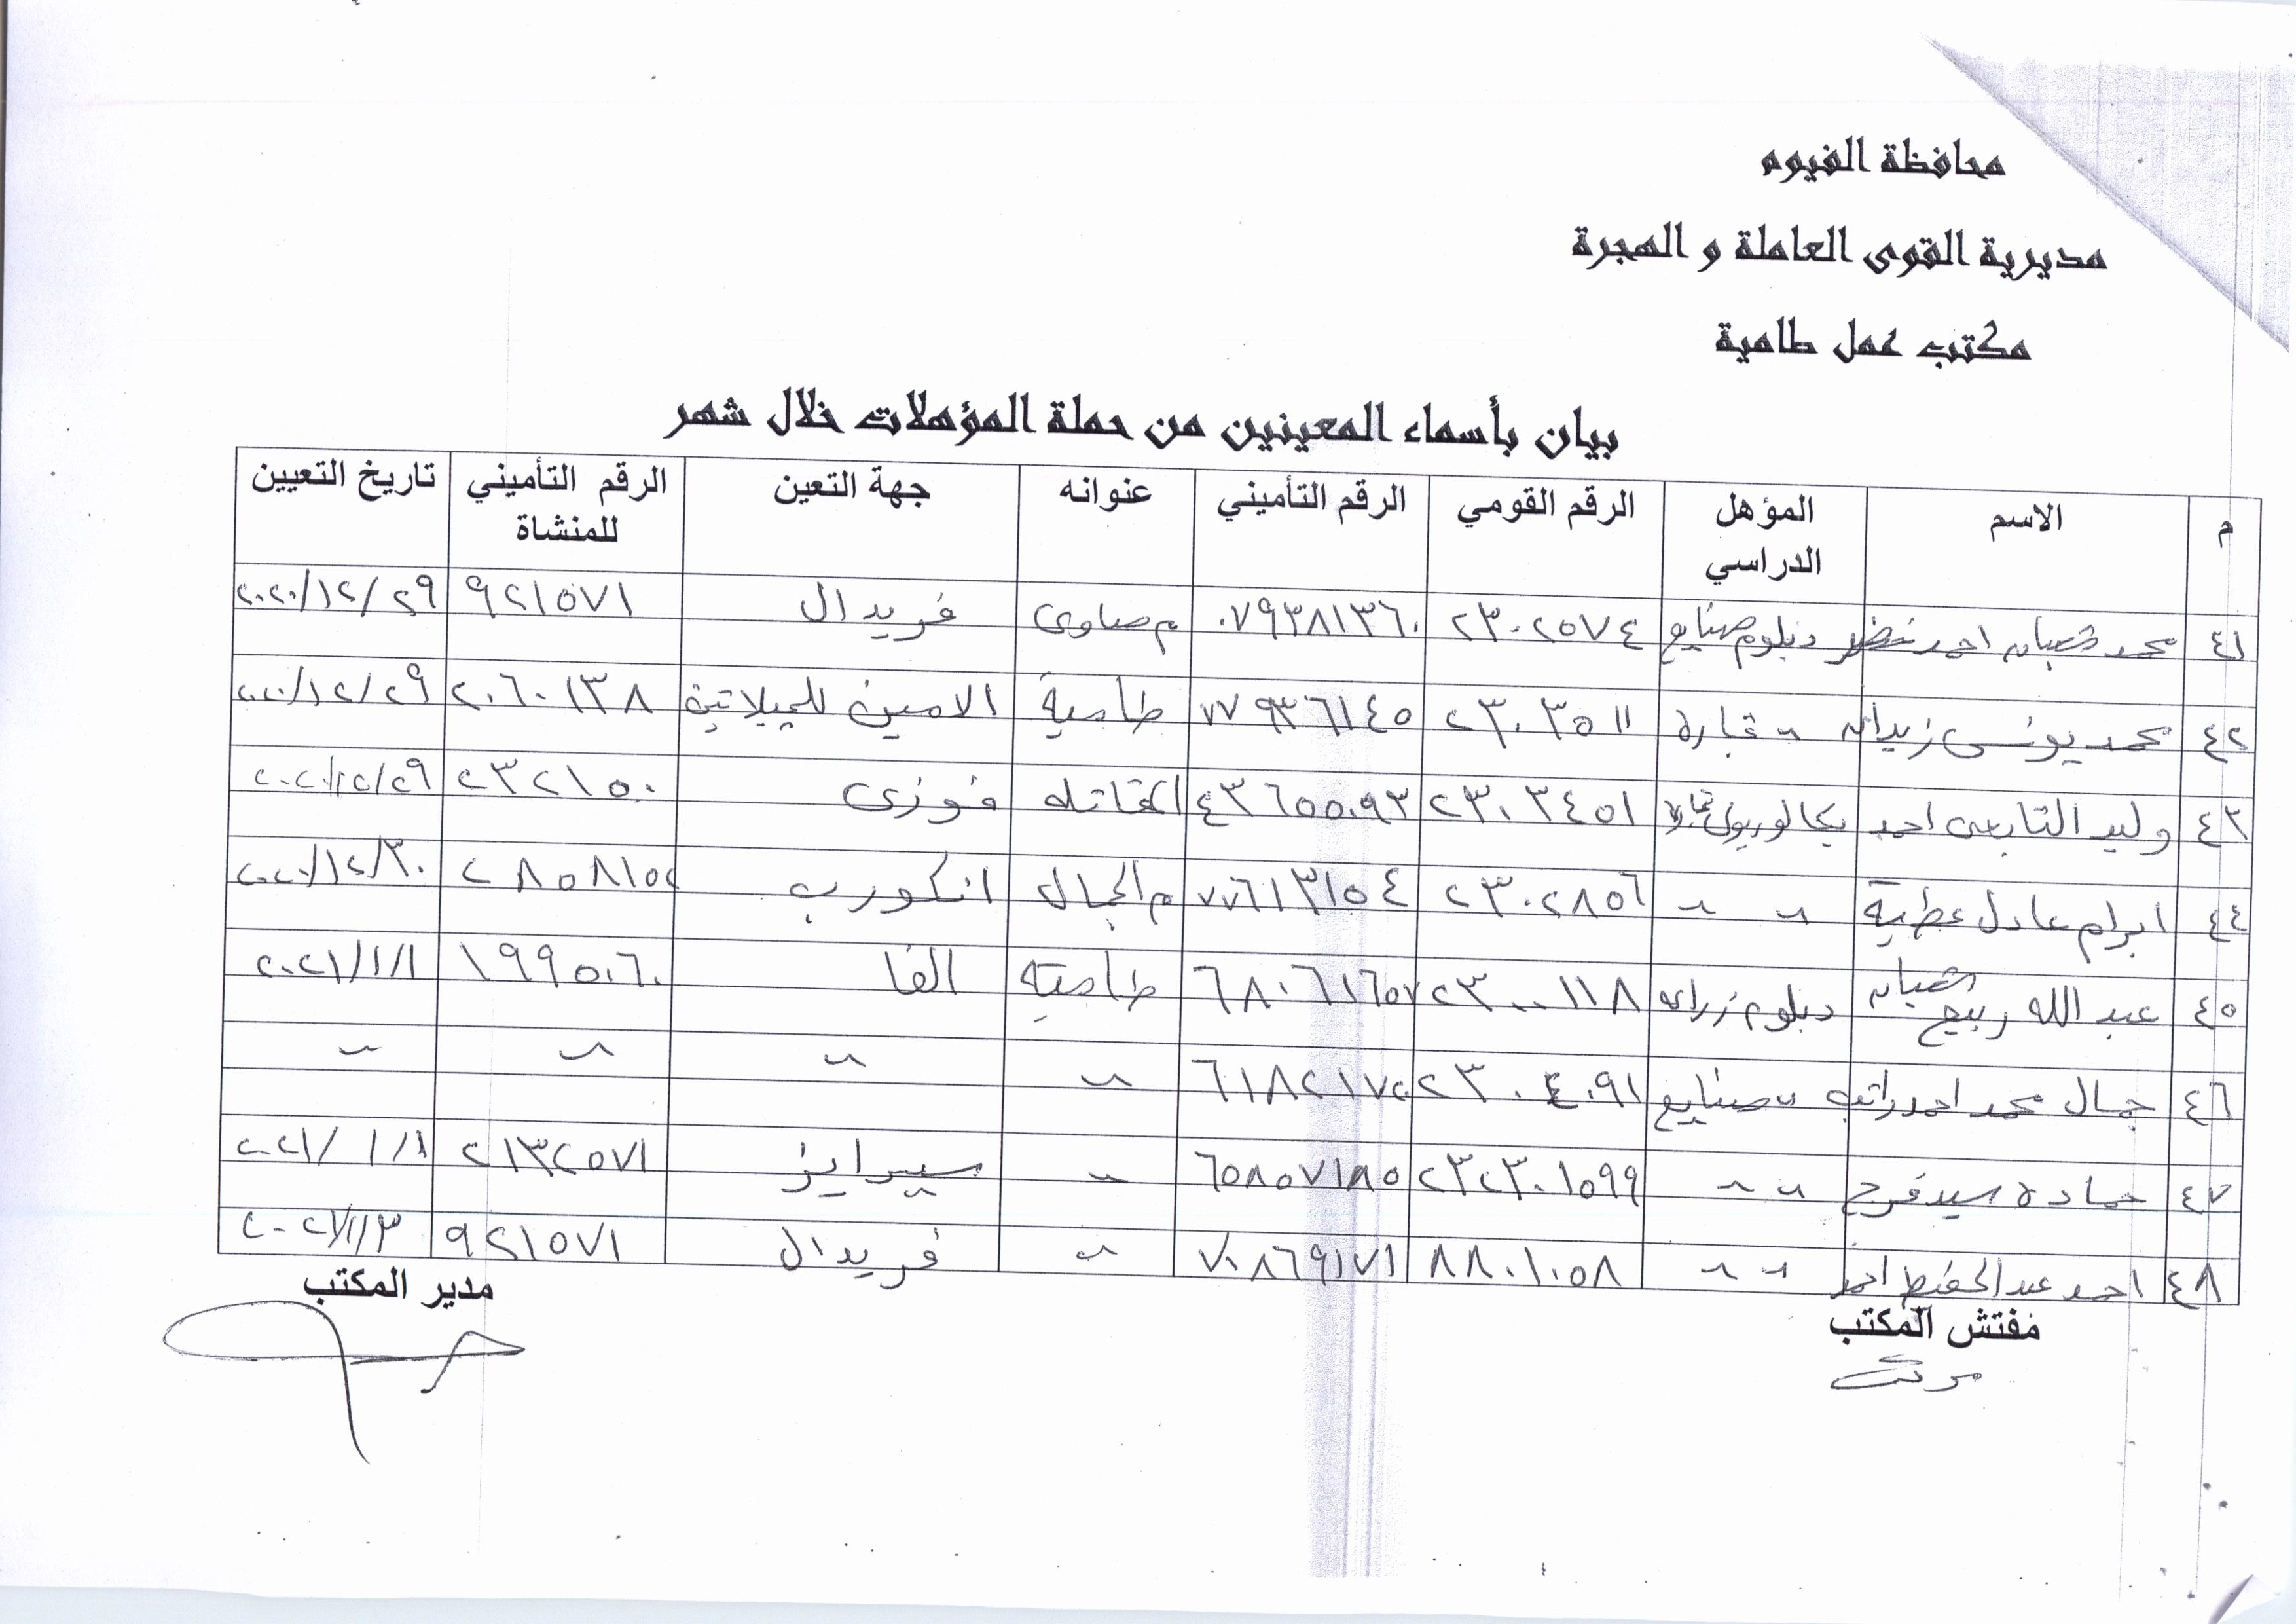 محافظة الفيوم
مديرية القوى العاملة و الهجرة
مكتب عمل طامية
بيان بأسماء المعينين من حملة المؤهلات خلال شهر
م الاسم المؤهل الدراسي الرقم القومي الرقم التأميني عنوانه جهة التعين الرقم التأميني للمنشاة تاريخ التعيين
٤١ محمد شعبان احمد خضر دبلوم صنايع ٢٣٠٢٥٧٤ ٠٧٩٣٨١٣٦٠ م صاوى فريدال ٩٢١٥٧١ ٢٠٢٠/١٢/٢٩
٤٢ محمد يونس زيدان " تجارة ٢٣٠٣٥١١ ٧٧٩٣٦١٤٥ طامية الامين للجيلاتين ٢٠٦٠١٣٨ ٢٠٢٠/١٢/٢٩
٤٣ وليد التابعى احمد بكالوريوس تجارة ٢٣٠٣٤٥١ ٤٣٦٥٥٠٩٣ فوزى ٢٣٢١٥٠ ٢٠٢٠/١٢/٢٩
٤٤ ابرام عادل عطية " " ٢٣٠٢٨٥٦ ٧٧٦١٣١٥٤ م الجمال انكورب ٢٨٥٨١٥٢ ٢٠٢٠/١٢/٣٠
٤٥ عبد الله ربيع شعبان دبلوم زراعه ٢٣٠٠٠١١٨ ٦٨٠٦١٦٥٧ طاميه الفا ١٩٩٥٠٦٠ ٢٠٢١/١/١
٤٦ جمال محمد احمد راتب " صنايع ٢٣٠٤٠٩١ ٦١٨٢١٧٢٠ " " " "
٤٧ حماده سيد فرج " " ٢٣٢٣٠١٥٩٩ ٦٥٨٥٧١٨٥ " سيرايز ٢١٣٢٥٧١ ٢٠٢١/١/١
٤٨ احمد عبد الحفيظ احمد " " ٨٨٠١٠٥٨ ٧٠٨٦٩١٧١ " فريدال ٩٢١٥٧١ ٢٠٢١/١/٣
مفتش المكتب
مدير المكتب